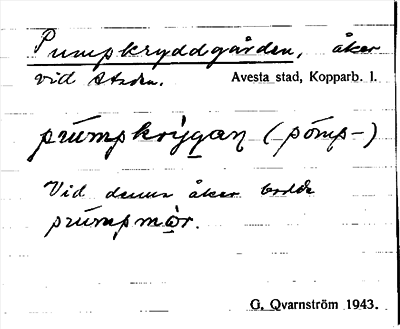 Pumpkryddgården, åker
vid staden. Avesta stad, Kopparb. l.
pùmpkrỳgaɳ (pòmp-)
Vid denna åker bodde
pùmpmòr.
G. Qvarnström 1943.